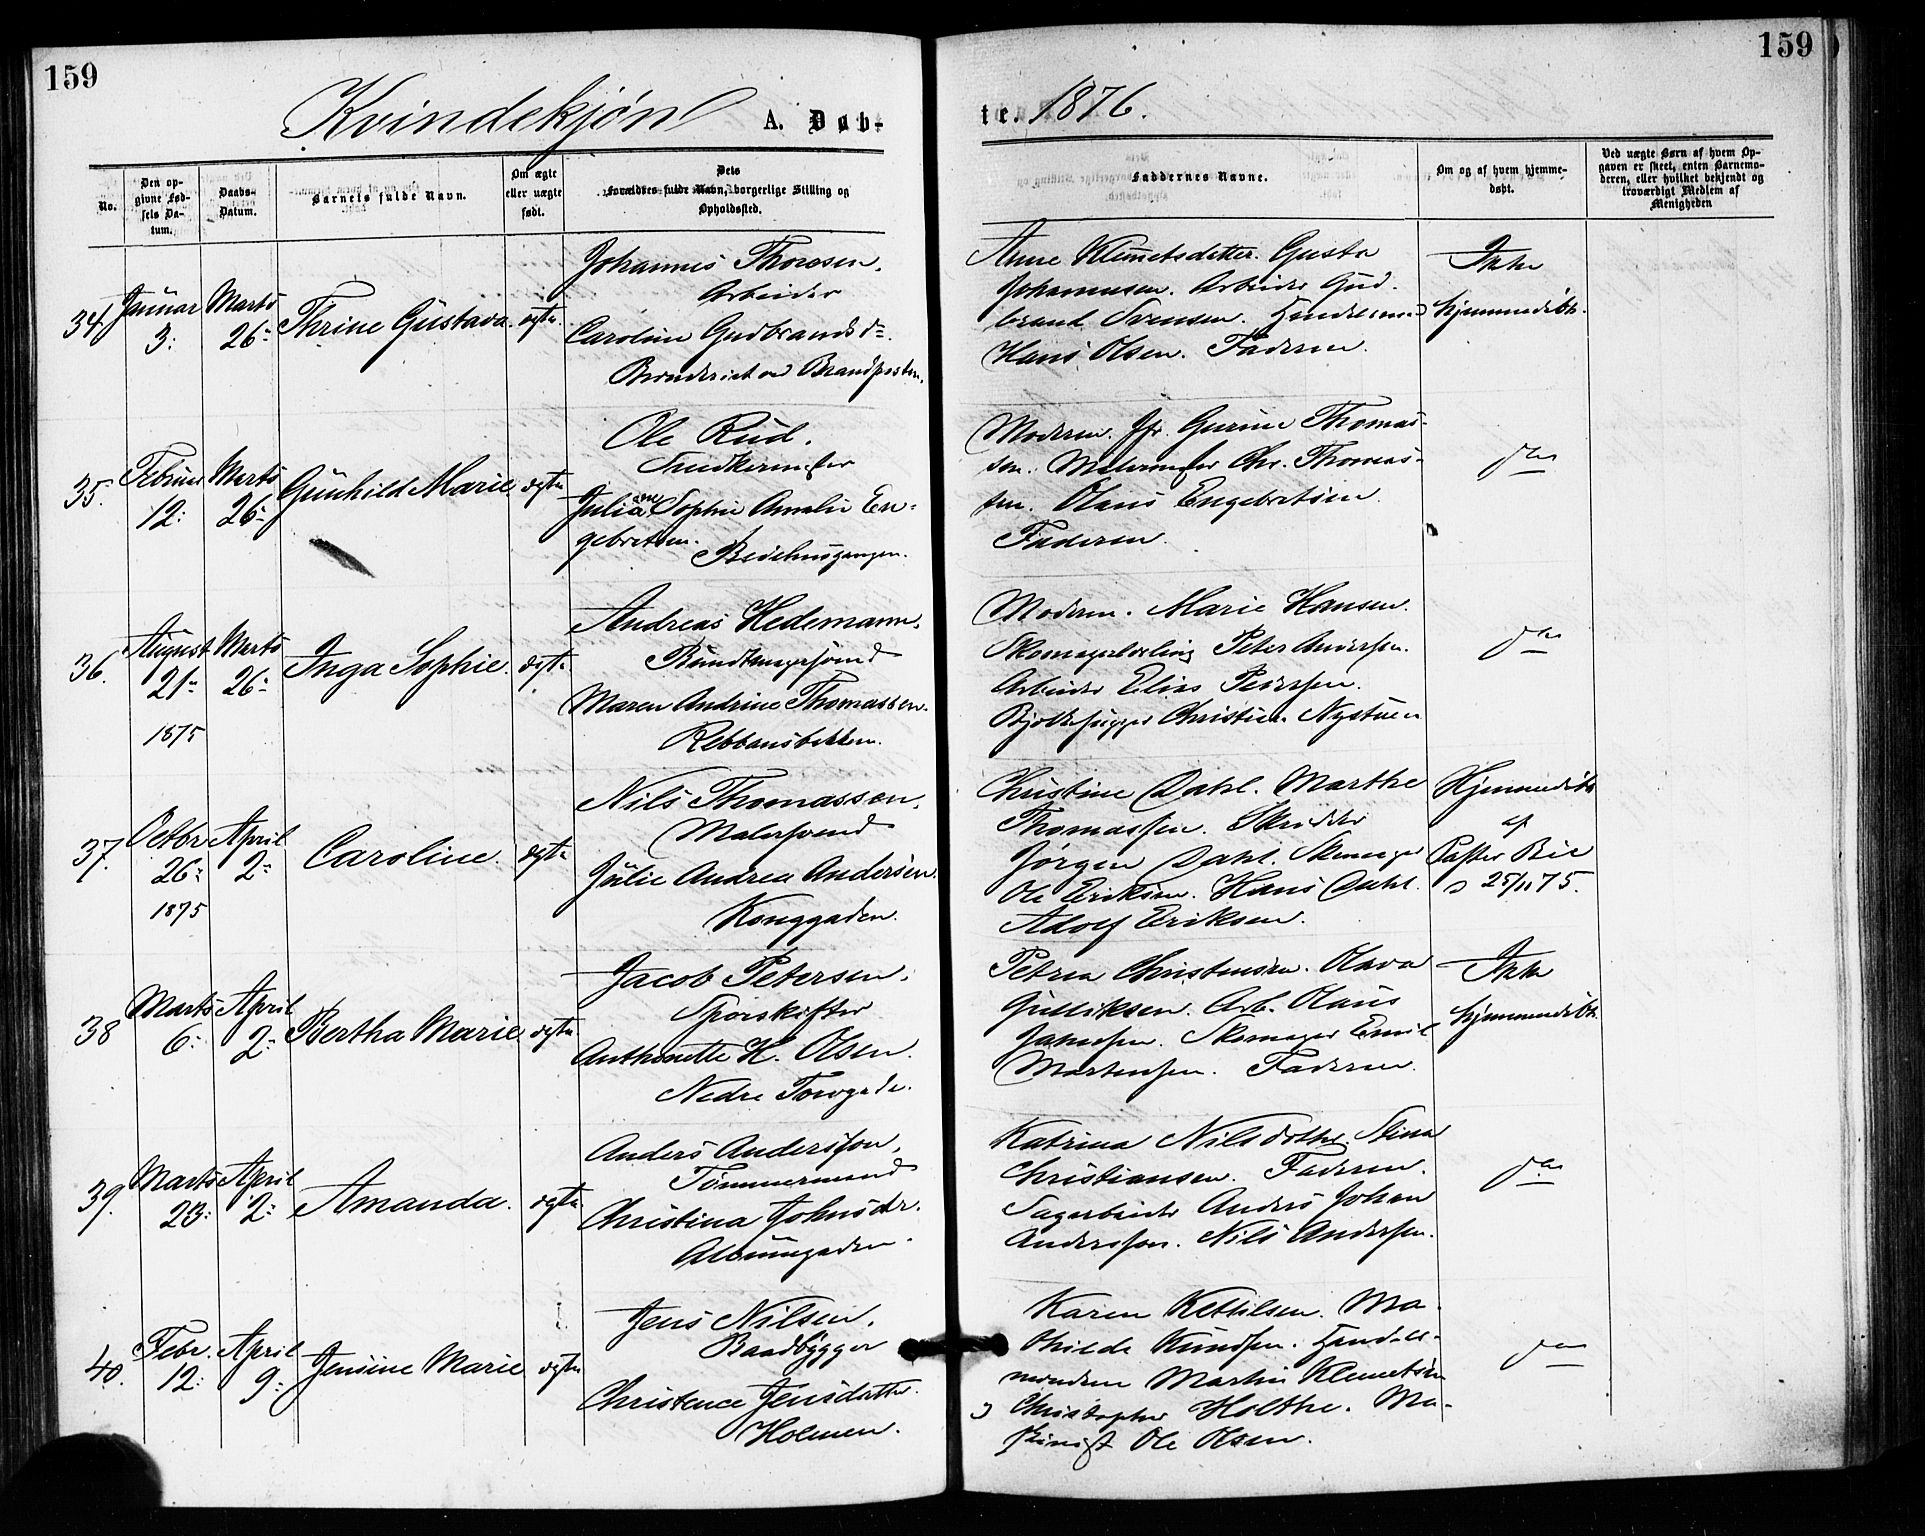 159
159
Kvindekjøn A. Døb-
te. 1876.
No.
Den op-
givne Fød-
sels Da-
tum.
Daabs-
Datum.
Barnets fulde Navn.
Om ægte
eller uægte
født.
Dets
Forældres fulde Navn, borgerlige Stilling og
Opholdssted.
Faddernes Navne.
Om og af hvem hjemme-
døbt.
Ved uægte Børn af hvem Op-
gaven er skeet, enten Barnemo-
deren, eller hvilket bekjendt og
troværdigt Medlem af
Menigheden
34.
Januar
3:
Marts
26:
Thrine Gustava.
ægte.
Johannes Thoresen.
Arbeider
Caroline Gudbrandsd.
Anne Klemetsdatter. Gusta
Johannesen. Arbeider Gud-
brand Svensen.
Hans Olsen. Faderen.
Ikke
hjemmedøbt.
35.
Februar
12:
Marts
26:
Gunhild Marie
ægte
Ole Rud.
Snedkermester
Juliane Sophie Amalie En-
gebretsen.
Bedehusgangen.
Moderen. Jfr. Gurine Thomas-
sen. Malermester Chr. Thomas-
sen. Olaus Engebretsen.
Faderen.
do
36.
August
21
1875
Marts
26:
Inga Sophie.
ægte
Andreas Hedemann.
Bundtmagersvend
Maren Andrine Thomassen.
Rebbansbakken.
Moderen. Marie Hansen.
Skomagerlærling Peter Andersen.
Arbeider Elias Pedersen.
Christian Nystuen
do
37.
Octbr
26:
1875
April
2:
Caroline.
ægte
Nils Thomassen.
Malersvend
Julie Andrea Andersen.
Konggaden.
Christine Dahl. Marthe
Thomassen. Skrædder
Jørgen Dahl. Skomager
Ole Eriksen. Hans Dahl.
Adolf Eriksen.
Hjemmedøbt
af
Pastor Bie
d 25/11 75.
38
Marts
6:
April
2:
Bertha Marie
ægte.
Jacob Petersen.
Sporskifter
Anthonette H. Olsen.
Nedre Torvgade.
Petrea Christensen. Olava
Gulliksen. Arb. Olaus
Jakobsen. Skomager Emil
Martensen. Faderen.
Ikke
hjemmedøbt.
39.
Marts
23:
April
2:
Amanda.
ægte.
Anders Andersson.
Tømmermand
Christina Johnsdr.
Albumgaden.
Katrina Nilsdotter. Stina
Christiansen. Faderen.
Sagarbeider Anders Johan
Andersson. Nils Andersen.
do
40.
Febr.
12:
April
9:
Jensine Marie
ægte
Jens Nilsen.
Baadbygger
Christence Jensdatter.
Holmen.
Karen Kettilsen. Ma-
thilde Knudsen. Handels-
mændene Martin Klemetsen
& Christopher Holthe. Ma-
skinist Ole Olsen.
do